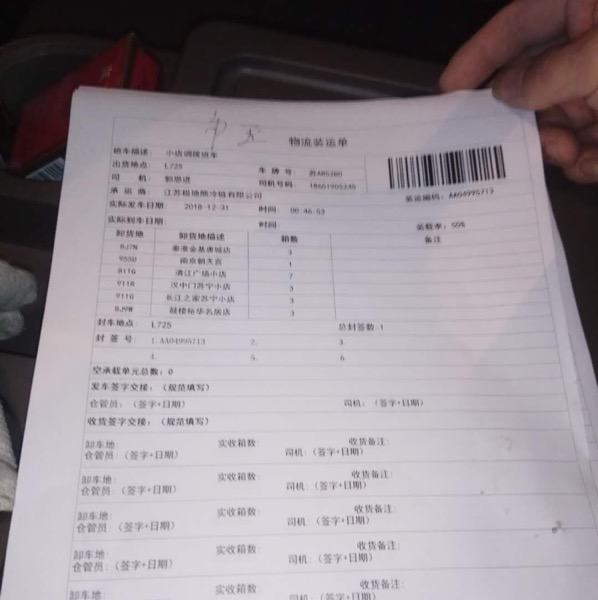 物流装运单
班车描述: 小店调拨班车
出货地点: L725 车 牌 号: 苏A85J80
司 机: 郭思进 司机号码: 18601905245
承 运 商: 江苏极地熊冷链有限公司 装运编码: AA04995713
实际发车日期: 2018-12-31 时间: 00:46:53
实际到车日期: 时间: 装载率: 50%
卸货地 卸货地描述 箱数 备注
BJ7N 秦淮金基唐城店 3
955U 南京朝天宫 1
811G 清江广场小店 7
911R 汉中门苏宁小店 3
911G 长江之家苏宁小店 3
BJ9W 鼓楼裕华名居店 3
封车地点: L725 总封签数: 1
封 签 号: 1.AA04995713 2. 3.
4. 5. 6.
空承载单元总数: 0
发车签字交接: (规范填写)
仓管员: (签字+日期) 司机: (签字+日期)
收货签字交接: (规范填写)
卸车地: 实收箱数: 收货备注:
仓管员: (签字+日期) 司机: (签字+日期)
卸车地: 实收箱数: 收货备注:
仓管员: (签字+日期) 司机: (签字+日期)
卸车地: 实收箱数: 收货备注:
仓管员: (签字+日期) 司机: (签字+日期)
卸车地: 实收箱数: 收货备注:
仓管员: (签字+日期) 司机: (签字+日期)
卸车地: 实收箱数: 收货备注: